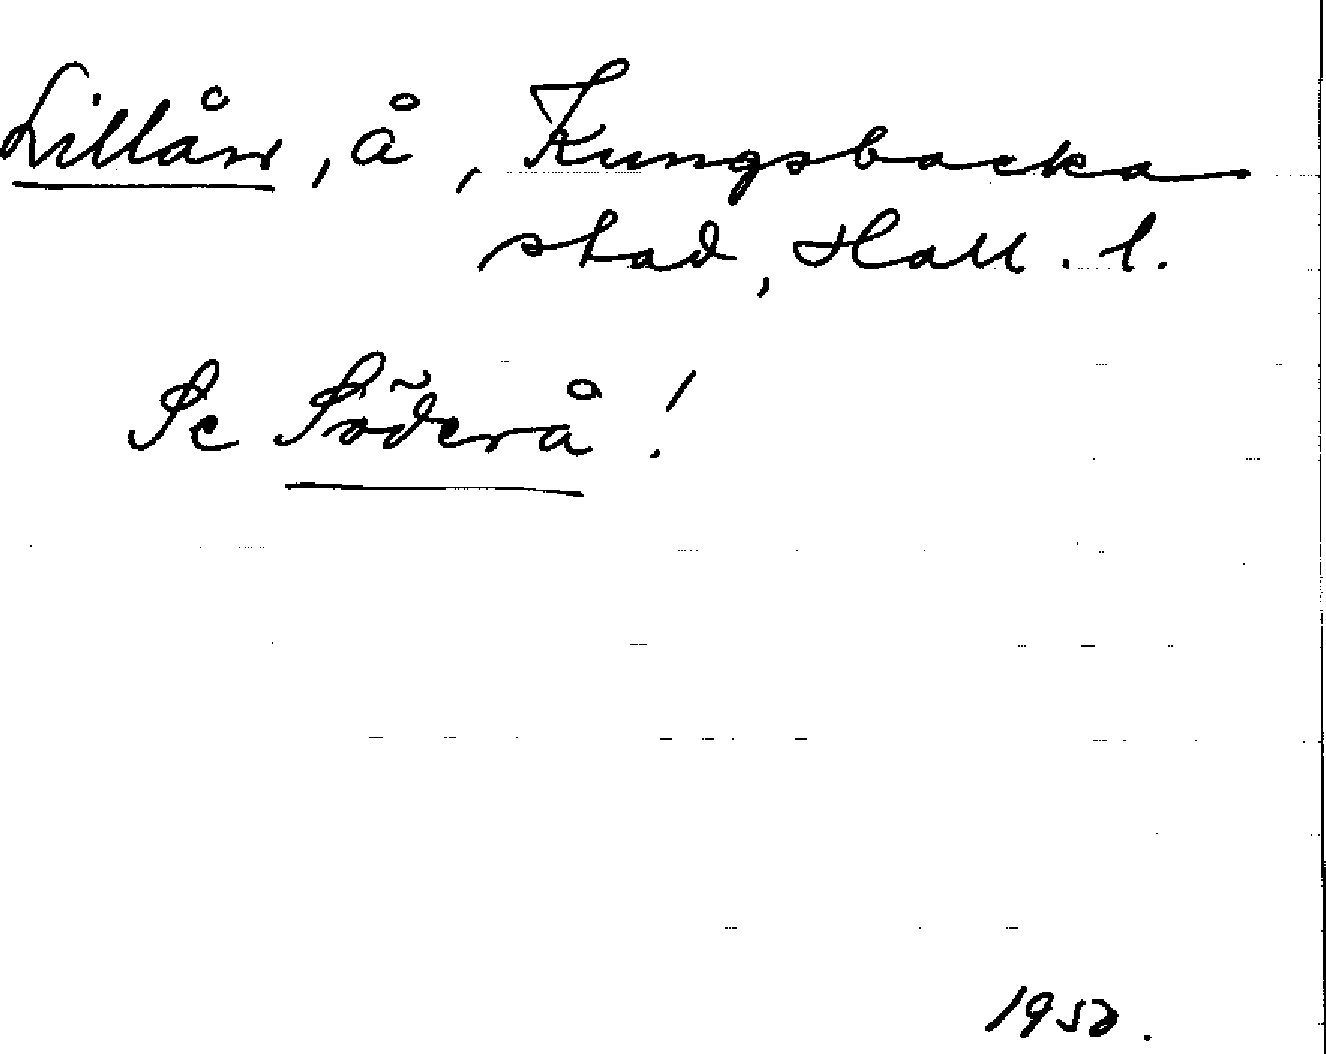 Lillån, å, Kungsbacka
stad, Hall. l.
Se Söderå!
1952.